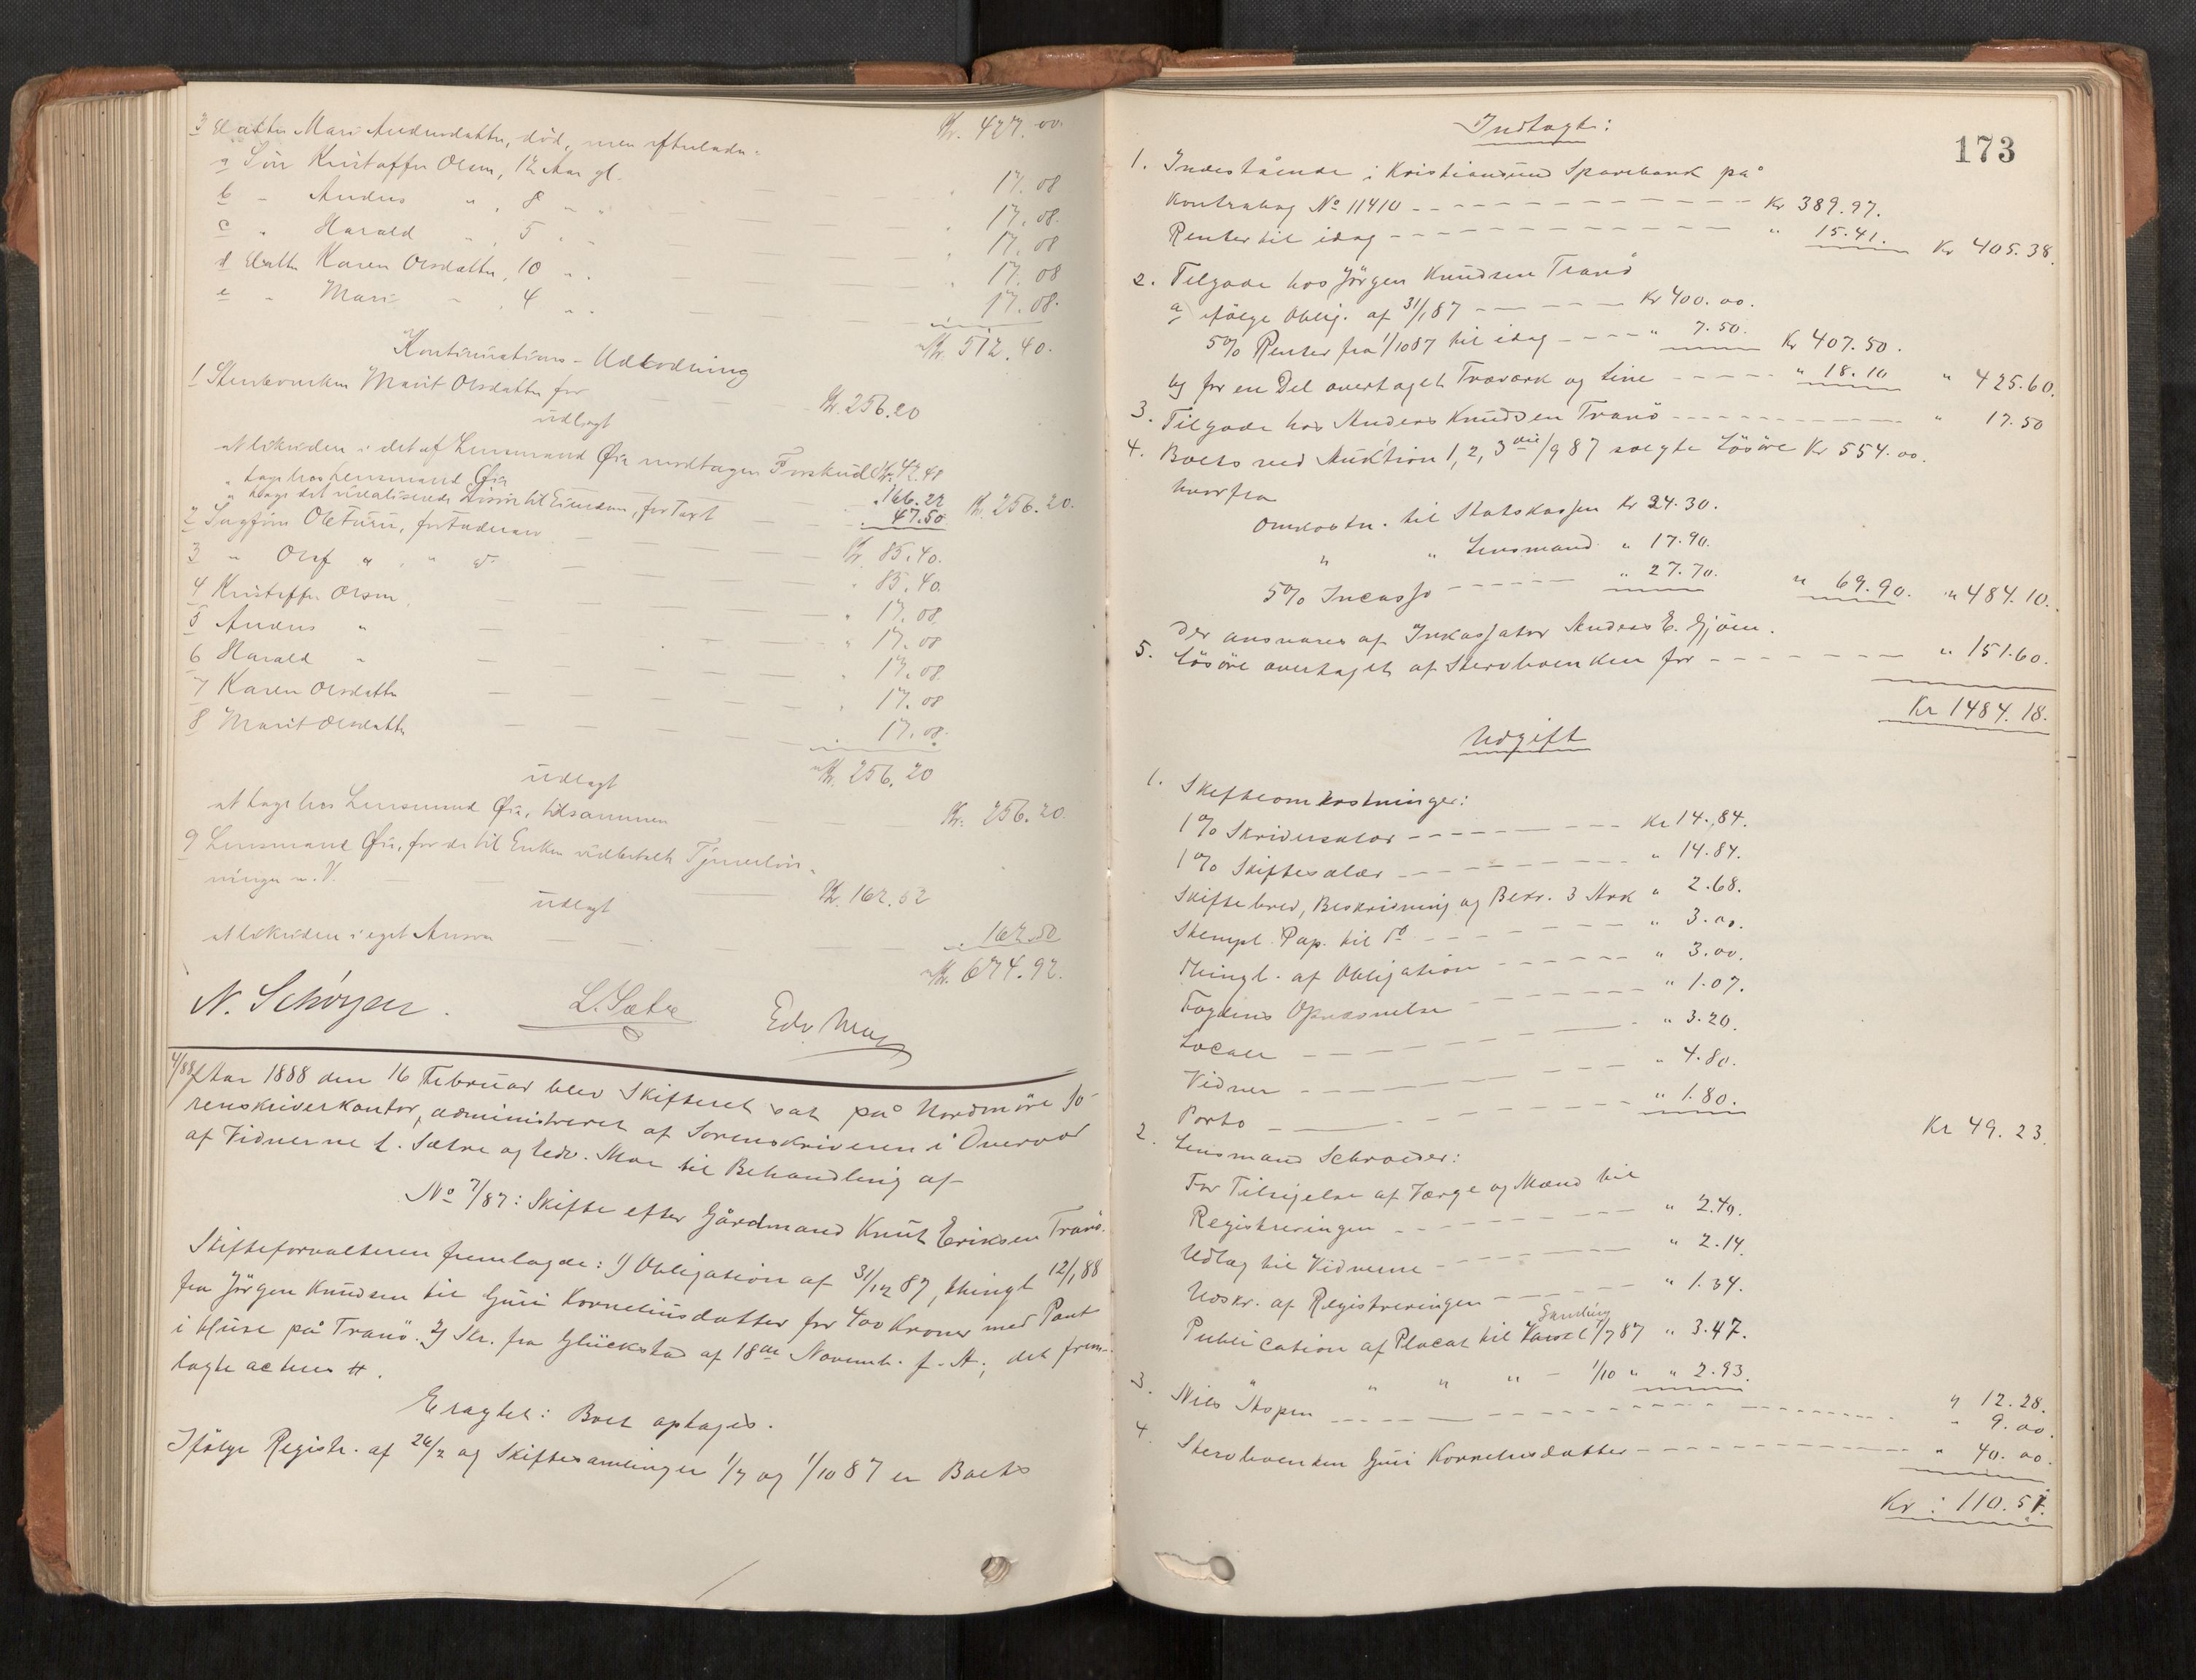 3 Datter Mari Andersdatter, död, men efterladt
Kr. 427.00.
a Sön Kristoffer Olsen, 12 Aar gl. " 17.08
b " Anders " , 8 " " " 17.08.
c " Harald " , 5 " " " 17.08
d Datter Karen Olsdatter, 10 " " " 17.08
e " Mari " , 4 " " " 17.08.
Kr. 512.40.
Kontinuations-Udlodning
1 Stervboenken Marit Olsdatter for Kr. 256.20
udlagt
at likvidere i det af Lensmand Öie modtagne Forskud Kr. 42.48
" tage hos Lensmand Öie " 166.22
" tage det urealiserede Lösöre til Eiendom, for Taxt " 47.50 Kr. 256.20.
2 Ingfön Olsen, for Faderarv Kr. 85.40.
3 " Oluf " , " do " 85.40.
4 Kristoffer Olsen " 17.08
5 Anders " " 17.08
6 Harald " " 17.08.
7 Karen Olsdatter " 17.08
8 Marit Olsdatter " 17.08.
Kr. 256.20
udlagt
at tage hos Lensmand Öie, tilsammen Kr. 256.20.
9 Lensmand Öie, for de til Enken udbetalte Tjenerlön-
ninger m.V. Kr. 162.52
udlagt
at likvidere i eget Ansvar " 162.52
Kr. 674.92.
N. Schöyen. L. Sætre Edv. Moe
4/88 Aar 1888 den 16 Februar blev Skifteret sat på Nordmöre So-
renskriverkontor, administreret af Sorenskriveren i Overvær
af Vidnerne L. Sætre og Edv. Moe til Behandling af
No 7/87: Skifte efter Gårdmand Knut Eriksen Tranö.
Skifteforvalteren fremlagde: 1) Obligation af 31/12 87, thingl 12/1 88
fra Jörgen Knudsen til Guri Korneliusdatter for 400 Kroner med Pant
i Huse på Tranö. 2) Skr. fra Glückstad af 18de Novemb. f. A.; det frem-
lagte acteres #.
Eragtet: Boet optages.
Ifölge Registr. af 26/2 og Skiftesamlinger 1/7 og 1/10 87 er Boets
173
Indtægt:
1. Indestående i Kristiansund Sparebank på
Kontrabog No 11410 Kr 389.97.
Renter til idag " 15.41. Kr 405.38.
2. Tilgode hos Jörgen Knudsen Tranö
a) ifölge Oblig. af 31/1 87 Kr 400.00.
5% Renter fra 1/10 87 til idag " 7.50. Kr 407.50.
b) for en Del overtaget Travark og Line " 18.10 " 425.60.
3. Tilgode hos Anders Knudsen Tranö " 17.50
4. Boets ved Auktion 1, 2, 3die/9 87 solgte Lösöre Kr 554.00.
hvorfra
Omkostn. til Statskassen Kr 24.30.
" " Lensmand " 17.90.
5% Incasso " 27.70. " 69.90. " 484.10.
der ansvares af Inkassator Anders E. Gjöen.
5. Lösöre overtaget af Stervboenken for " 151.60.
Kr 1484.18.
Udgift
1. Skifteomkostninger:
1% Skriversalær Kr 14.84.
1% Skiftesalær " 14.84.
Skiftebrev, Beskrivning og Bekr. 3 Ark " 2.68.
Stempl. Pap. til do " 3.00.
Thingl. af Obligation " 3.00.
Fogdens Opnævnelse " 1.07.
Locale " 3.20.
Vidner " 4.80.
Porto " 1.80.
Kr 49.23.
2. Lensmand Schrøder:
For Tilsigelse af Værge og Mænd til
Registreringen " 2.40.
Udlæg til Vidnerne " 2.14.
Udskr. af Registreringen " 1.34.
Samling
Publication af Placat til 1/7 87 " 3.47.
" " " - 1/10 " " 2.93.
" 12.28.
3. Nils Aspen " 9.00.
4. Stervboenken Guri Korneliusdatter " 40.00.
Kr: 110.51.